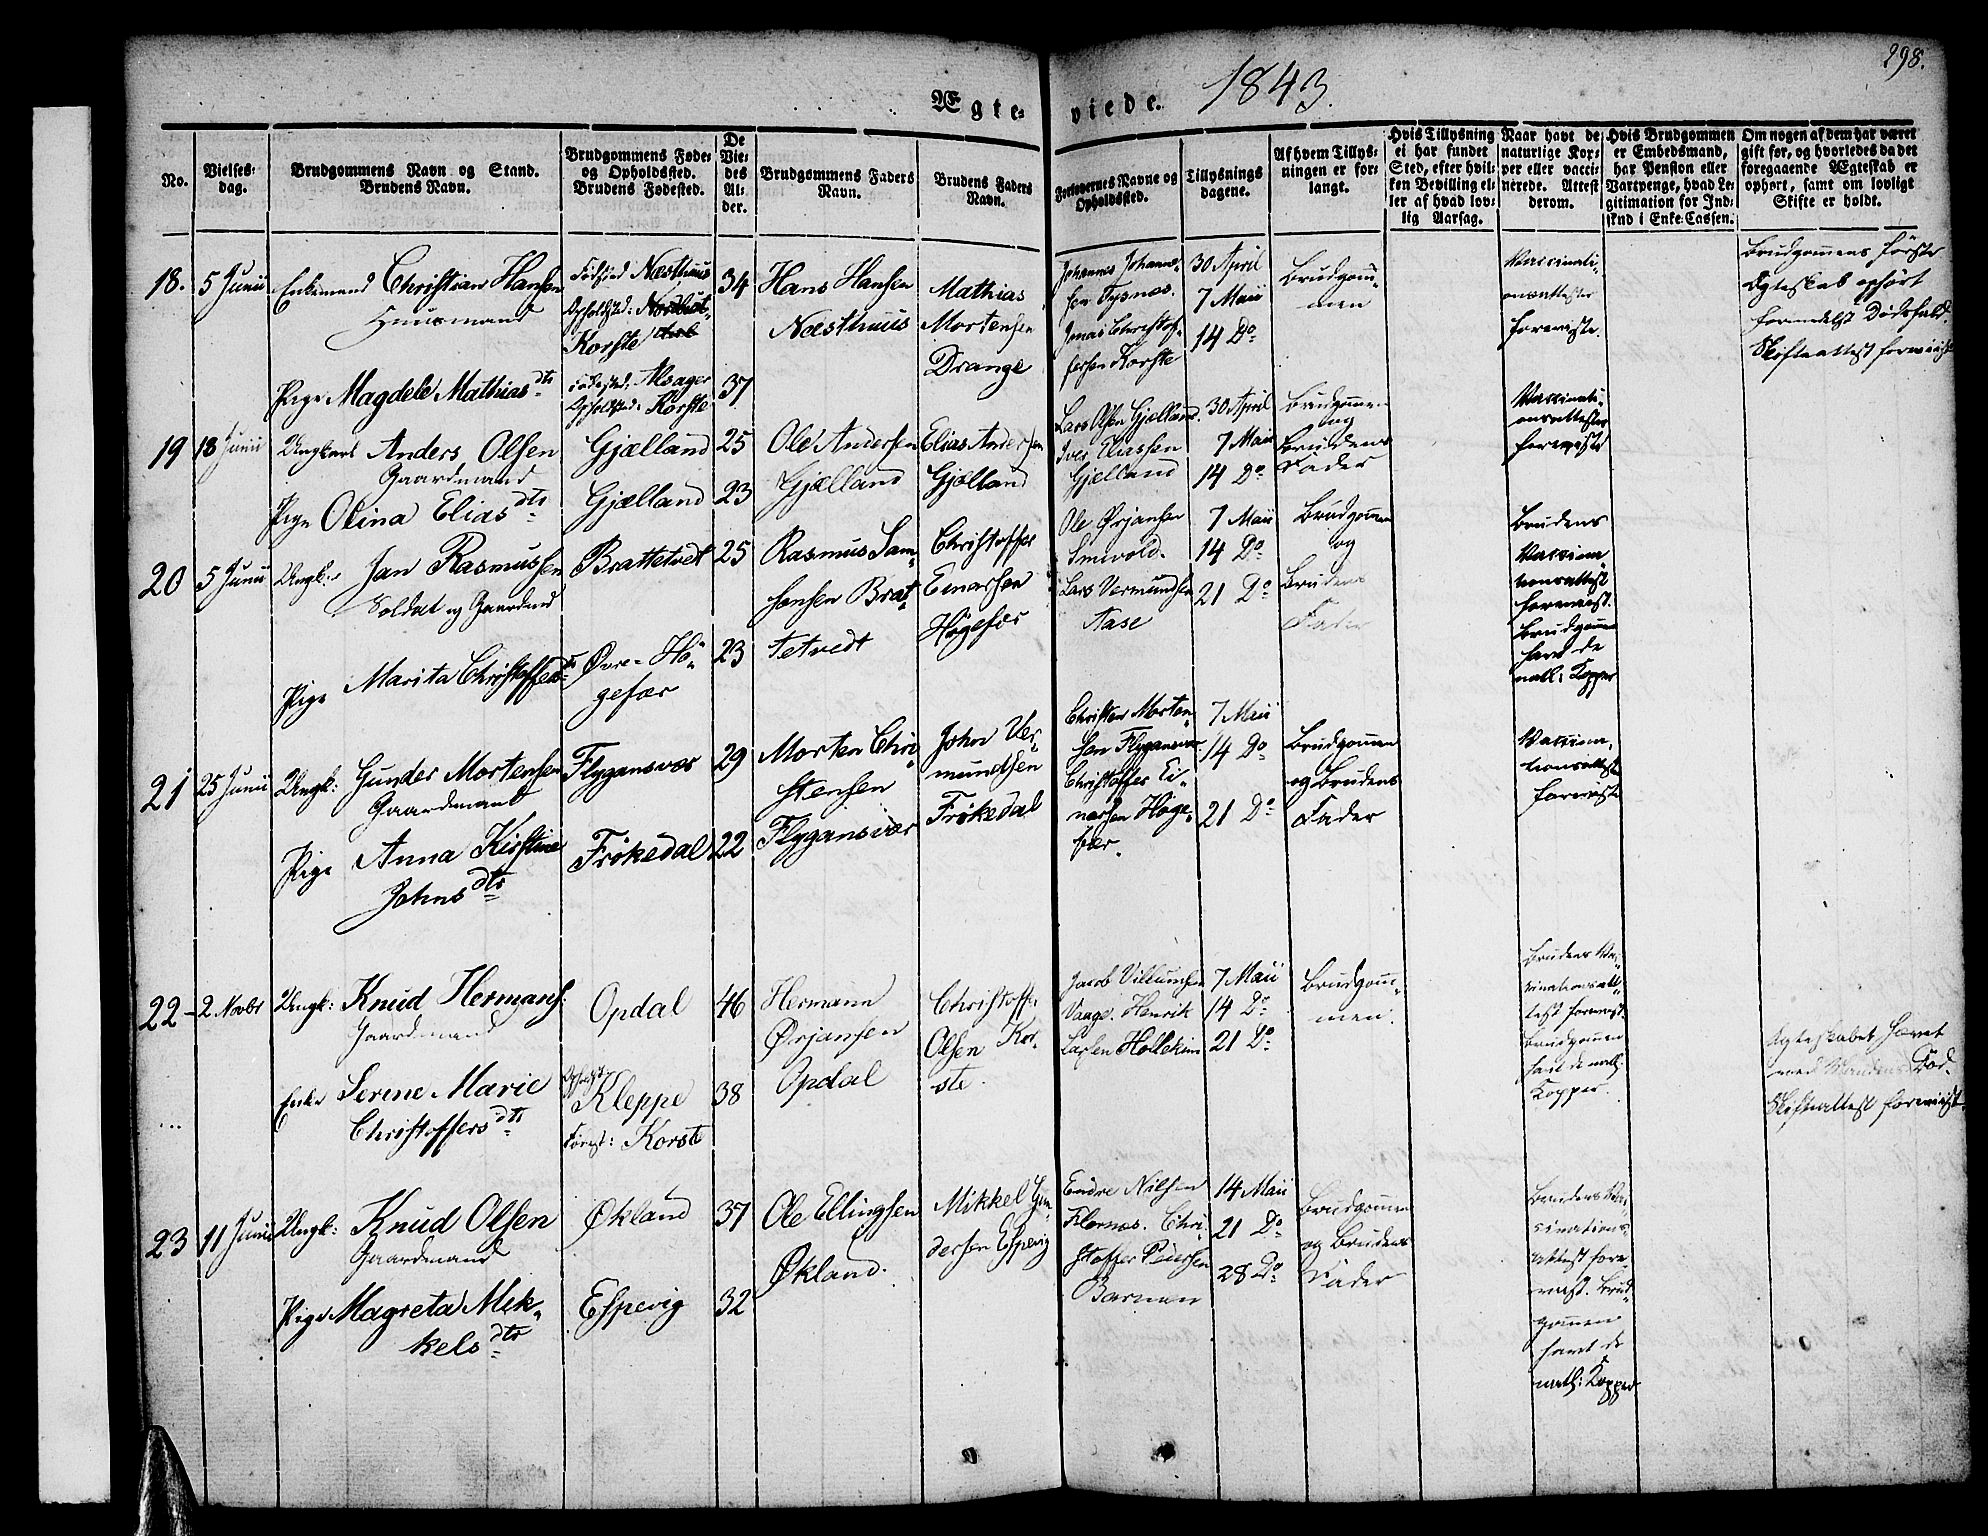 298.
Ægte-
viede. 1843.
No.
Vielses-
dag.
Brudgommens Navn og Stand.
Brudens Navn.
Brudgommens Føde-
og Opholdssted.
Brudens Fødested.
De
Vie-
des
Al-
der.
Brudgommens Faders
Navn.
Brudens Faders
Navn.
Forlovernes Navne og
Opholdssted.
Tillysnings
dagene.
Af hvem Tillys-
ningen er for-
langt.
Hvis Tillysning
ei har fundet
Sted, efter hvil-
ken Bevilling el-
ler af hvad lov-
lig Aarsag.
Naar havt de
naturlige Kop-
per eller vacci-
nerede. Attest
derom.
Hvis Brudgommen
er Embedsmand,
har Pension eller
Vartpenge, hvad Le-
gitimation for Ind-
skud i Enke-Cassen.
Om nogen af dem har været
gift før, og hvorledes da det
foregaaende Ægteskab er
ophørt, samt om lovligt
Skifte er holdt.
18. 5 Junii
Enkemand Christian Hansen
Huusmand
Næsthuus
Opholdsted:
Korste
34
Hans Hansen
Næsthuus
Mathias
Mortensen
Drange
Johannes Johanne-
sen Tysnæs.
Jonas Christof-
fersen Korste
30 April
7 Maii
14 Do
Brudgom-
men
Vaccinati-
onsattester
foreviiste.
Brudgommens første
Ægteskab ophørt
formedelst Dødsfald.
Skifteattest foreviist
Pige Magdele Mathiasdtr
Fødested: Alsager
Opholdsted: Korste
37
19 18 Junii
Ungkarl Anders Olsen
Gaardmand
Gjælland
25
Ole Andersen
Gjælland
Elias Andersen
Gjælland
Lars Olsen Gjælland.
Iver Eliassen
Gjælland
30 April
7 Maii
14 Do
Brudgommen
og
Brudens
Fader
Vaccinati-
onsattester
foreviiste
Pige Olina Eliasdtr
Gjælland
23
20 5 Junii
Ungk: Jan Rasmussen
Soldat og Gaardmd
Brattetvedt
25
Rasmus Sam-
sonsen Brat-
tetvedt
Christoffer
Einarsen
Høgefær
Ole Ørjansen
Lars Vermundsen
Aase
7 Maii
14 Do
21 Do
Brudgommen
og
Brudens
Fader
Brudens
Vaccina-
tionsattest
foreviist.
Brudgommen
havt de
natl: Kopper
Pige Marita Christoffersdtr
Øvre-Hø-
gefær
23
21 25 Junii
Ungk: Gunder Mortensen
Gaardmand
Flygansvær
29
Morten Chri-
stensen
Flygansvær
John Ver-
mundsen
Frøkedal
Christen Morten-
sen Flygansvær
Christoffer Ei-
narsen Høge-
fær.
7 Maii
14 Do
21 Do
Brudgommen
og Brudens
Fader
Vaccina-
tionsattester
foreviiste
Pige Anna Kirstine
Johnsdtr
Frøkedal
22
22 2 Novbr
Ungk: Knud Hermans:
Gaardmand
Opdal
46
Hermann
Ørjansen
Opdal
Christoffer
Olsen Kor-
ste.
Jacob Villumsen
Vaage. Henrik
Larsen Hollekim
7 Maii
14 Do
21 Do
Brudgom-
men.
Brudens Vac-
cinationsatt-
test foreviist.
Brudgommen
havt de natl:
Kopper.
Ægteskabet hævet
ved Mandens Død.
Skifteattest foreviist.
Enke Serene Marie
Christoffersdtr
Opholdst:
Kleppe
Fødest: Korste
38
23 11 Junii
Ungk: Knud Olsen
Gaardmand
Økland
37
Ole Ellingsen
Økland.
Mikkel Gun-
dersen Espevig
Endre Nilsen
Flornæs. Chri-
stoffer Pedersen
14 Maii
21 Do
28 Do
Brudgommen
og Brudens
Fader
Brudens Vac-
cinations-
attest fore-
viist. Brud-
gommen
havt de
natl: Kopper
Pige Magreta Mik-
kelsdtr
Espevig
32